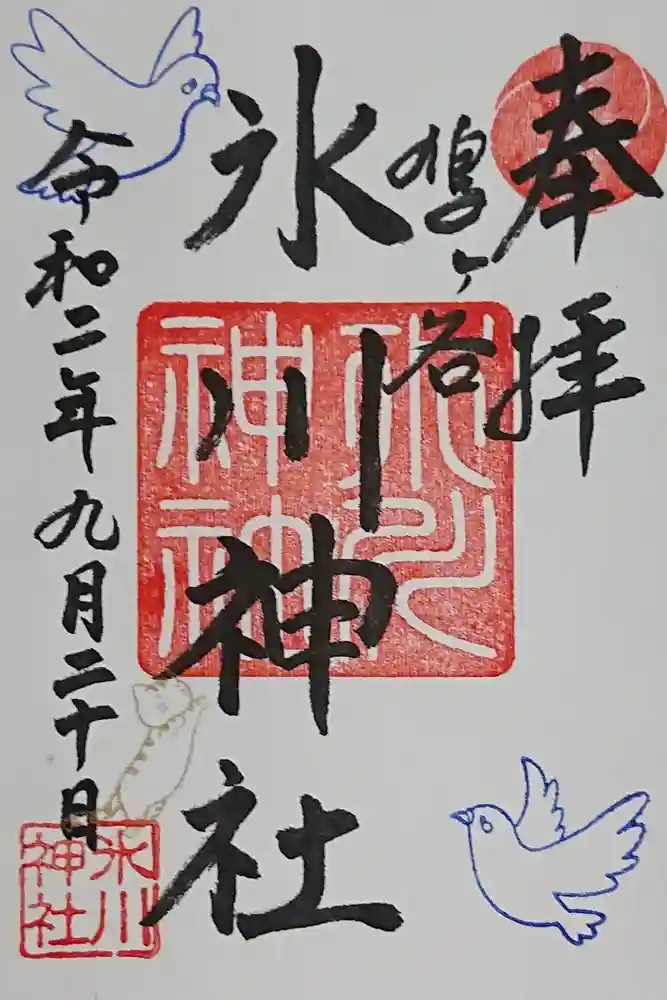 奉拝
鳩ヶ谷
氷川神社
令和二年九月二十日
氷川
神社